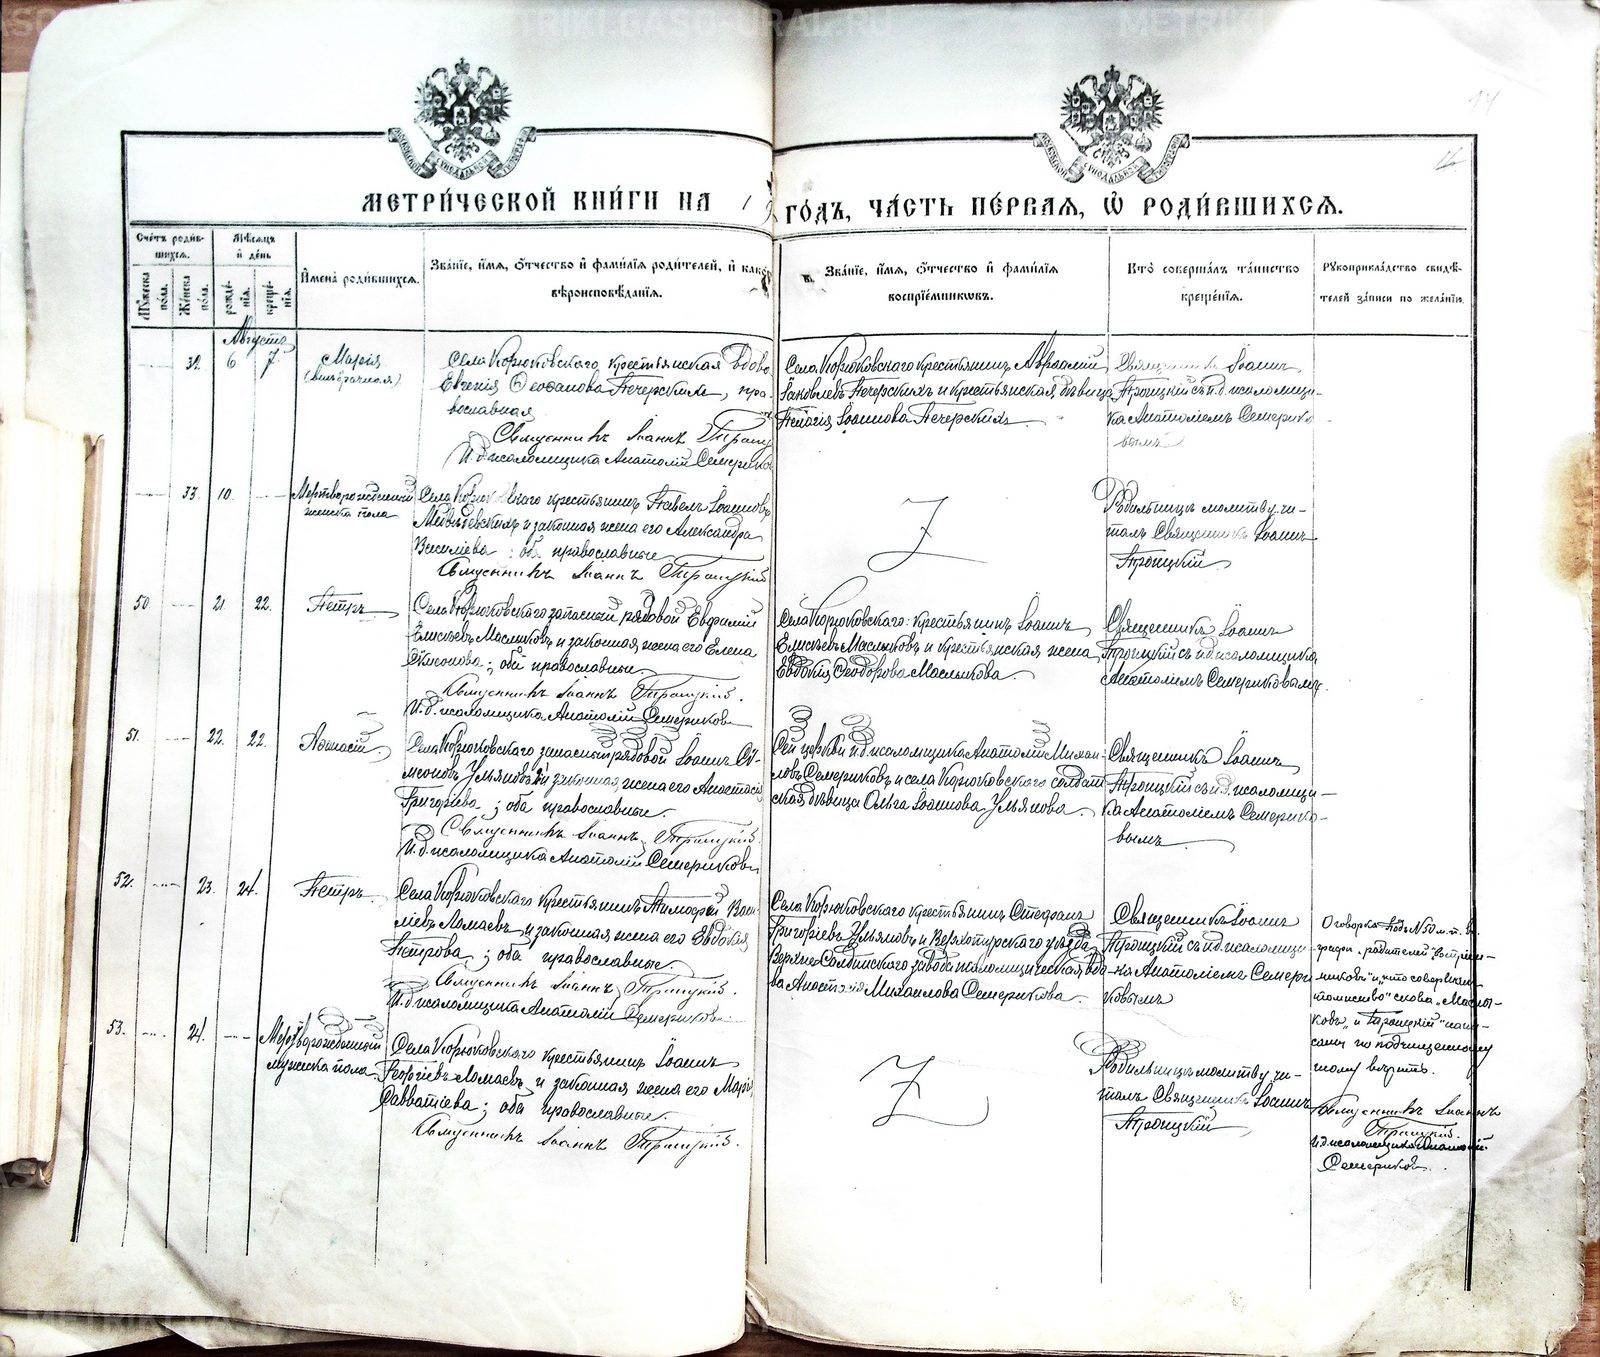 METRIKI.GASO-URAL.RU
МЕТРИ́ЧЕСКОЙ КНИ́ГИ НА 1 ГО́ДЪ, ЧА́СТЬ ПЕ́РВАЯ, Ѡ҆ РОДИ́ВШИХСЯ.
Сче́тъ роди́в-
шихся.
Мѣ́сяцъ
и҆ де́нь
Мꙋ́жеска по́ла.
Же́нска по́ла.
рожде́-
нїя.
креще́-
нїя.
И҆мена̀ роди́вшихся.
Зва́нїе, и҆́мя, ѻ҆́тчество и҆ фами́лїя роди́телей, и҆ како́гѡ
вѣроисповѣ́данїя.
Зва́нїе, и҆́мя, ѻ҆́тчество и҆ фами́лїя
воспрїе́мникѡвъ.
Кто̀ соверша́лъ та́инство
креще́нїя.
Рꙋкоприкла́дство свидѣ́-
телей за́писи по жела́нїю.
Августъ
32. 6 7 Марія
(внѣбрачная)
Села Корюковского крестьянская вдова
Евгенія Ѳеофанова Печерскихъ, пра-
вославная
Священникъ Іоаннъ Троицкій
И.д. псаломщика Анатолій Семериков
Села Корюковского крестьянинъ Авраамій
Іаковлевъ Печерскихъ и крестьянская дѣвица
Пелагія Іоаннова Печерскихъ
Священникъ Іоаннъ
Троицкій съ и.д. псаломщи-
ка Анатоліемъ Семерико-
вымъ
33. 10. Мертворожденный
женска пола
Села Корюковского крестьянинъ Павелъ Іоанновъ
и законная жена его Александра
Василіева; оба православные
Священникъ Іоаннъ Троицкій
Родильницѣ молитву чи-
талъ Священникъ Іоаннъ
Троицкій
50. 21. 22. Петръ
Села Корюковского запасный рядовой Евфимій
Елисѣевъ Масликовъ и законная жена его Елена
; оба православные.
Священникъ Іоаннъ Троицкій.
И.д. псаломщика Анатолій Семериковъ
Села Корюковского: крестьянинъ Іоаннъ
Елисѣевъ Масликовъ и крестьянская жена
Евдокія Ѳеодорова Масликова.
Священникъ Іоаннъ
Троицкій съ и.д. псаломщика
Анатоліемъ Семериковымъ.
51. 22. 22. Аѳанасій
Села Корюковского запасный рядовой Іоаннъ Си-
меоновъ Ульяновъ и законная жена его Анастасія
Григоріева; оба православные.
Священникъ Іоаннъ Троицкій.
И.д. псаломщика Анатолій Семериковъ
Сей церкви и.д. псаломщика Анатолій Михаи-
ловъ Семериковъ и села Корюковского солдат-
ская дѣвица Ольга Іоаннова Ульянова.
Священникъ Іоаннъ
Троицкій съ и.д. псаломщи-
ка Анатоліемъ Семерико-
вымъ
52. 23. 24. Петръ
Села Корюковского крестьянинъ Тимофей Васи-
ліевъ Ломаевъ и законная жена его Евдокія
Петрова; оба православные.
Священникъ Іоаннъ Троицкій.
И.д. псаломщика Анатолій Семериковъ
Села Корюковского крестьянинъ Стефанъ
Григоріевъ Ульяновъ и Верхотурского уѣзда
Верхне-Салдинского завода псаломщическая вдо-
ва Анастасія Михаилова Семерикова.
Священникъ Іоаннъ
Троицкій съ и.д. псаломщи-
ка Анатоліемъ Семери-
ковымъ
Оговорка. Подъ №50 м.п. въ
графѣ „родителей воспріем-
никовъ" и „кто совершалъ
таинство" слова „Масли-
ковъ" и „Троицкій" напи-
саны по подчищенному
тому вѣрить.
Священникъ Іоаннъ
Троицкій.
И.д. псаломщика Анатолій
Семериковъ.
53. 24. Мертворожденный
мужска пола
Села Корюковского крестьянинъ Іоаннъ
Георгіевъ Ломаевъ и законная жена его Марія
Савватіева; оба православные.
Священникъ Іоаннъ Троицкій.
Родильницѣ молитву чи-
талъ Священникъ Іоаннъ
Троицкій